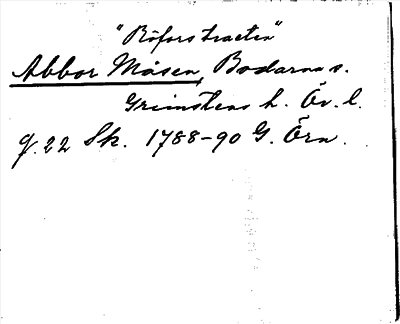 "Röforstracten"
Abbor Måsen, Bodarna s.
Grimstens h. Ör. l.
g. 22 Sk. 1788-90 G. Örn.